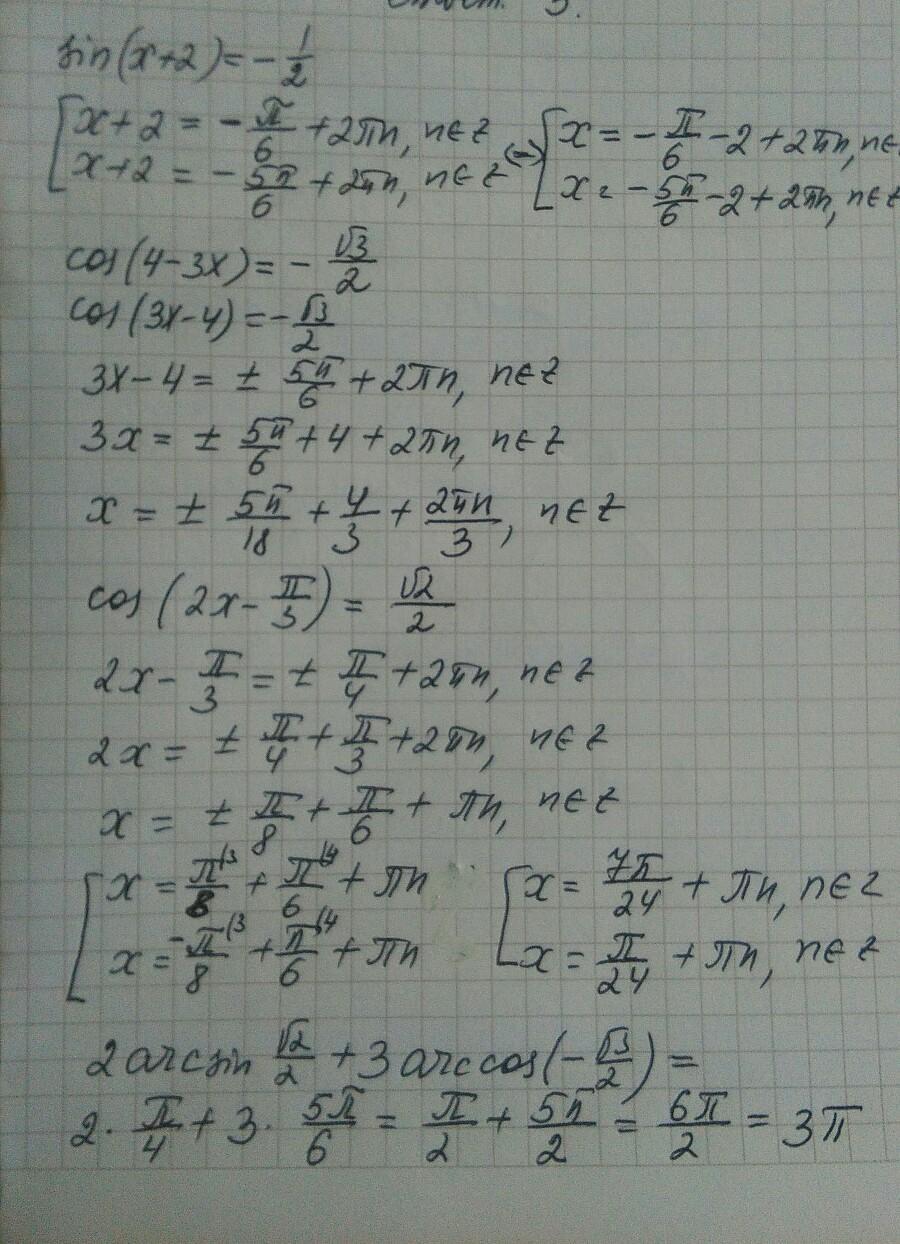 sin(x+2) = -1/2
[ x+2 = -π/6 + 2πn, n∈Z
x+2 = -5π/6 + 2πn, n∈Z
⟺ [ x = -π/6 - 2 + 2πn, n∈
x = -5π/6 - 2 + 2πn, n∈Z
cos(4-3x) = -√3/2
cos(3x-4) = -√3/2
3x-4 = ± 5π/6 + 2πn, n∈Z
3x = ± 5π/6 + 4 + 2πn, n∈Z
x = ± 5π/18 + 4/3 + 2πn/3, n∈Z
cos(2x - π/3) = √2/2
2x - π/3 = ± π/4 + 2πn, n∈Z
2x = ± π/4 + π/3 + 2πn, n∈Z
x = ± π/8 + π/6 + πn, n∈Z
[ x = π/8 (3 + π/6 (4 + πn
x = -π/8 (3 + π/6 (4 + πn
[ x = 7π/24 + πn, n∈Z
x = π/24 + πn, n∈Z
2 arcsin √2/2 + 3 arccos(-√3/2) =
2 · π/4 + 3 · 5π/6 = π/2 + 5π/2 = 6π/2 = 3π